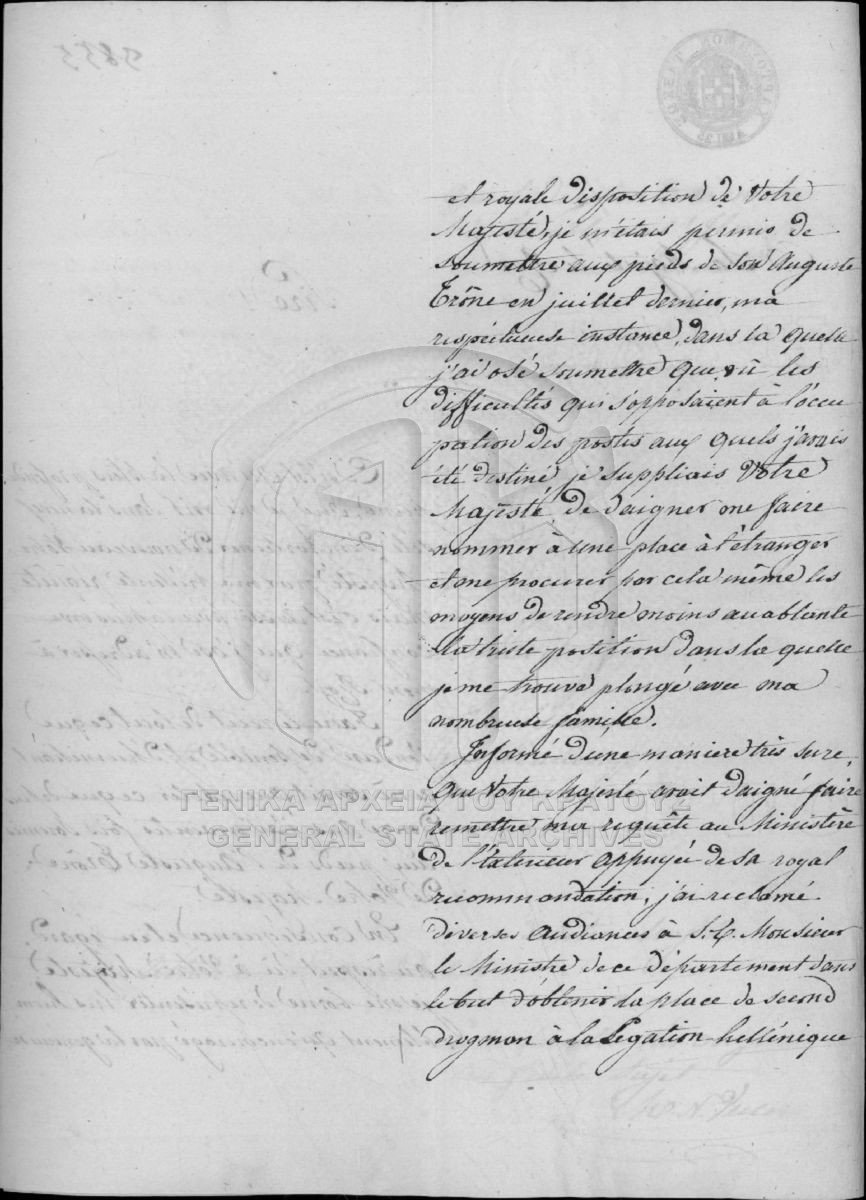 et royale disposition de Votre
Majesté, je m'étais permis de
soumettre aux pieds de son Auguste
Trône en juillet dernier, ma
respectueuse instance, dans la quelle
j'ai osé soumettre que vû les
difficultés qui s'opposaient à l'occu
pation des postes aux quels j'avais
été destiné je suppliais Votre
Majesté de daigner me faire
nommer à une place à l'étranger
et me procurer par cela même les
moyens de rendre moins accablante
la triste position dans la quelle
je me trouve plongé avec ma
nombreuse famille.
Informé d'une maniere très sure,
que Votre Majesté avait daigné faire
remettre ma requête au Ministère
de l'Exterieur appuyée de sa royal
recommandation, j'ai reclamé
diverses audiances à S. E. Monsieur
le Ministre de ce département dans
le but d'obtenir la place de second
drogman à la Légation hellénique
ΓΕΝΙΚΑ ΑΡΧΕΙΑ ΤΟΥ ΚΡΑΤΟΥΣ
GENERAL STATE ARCHIVES